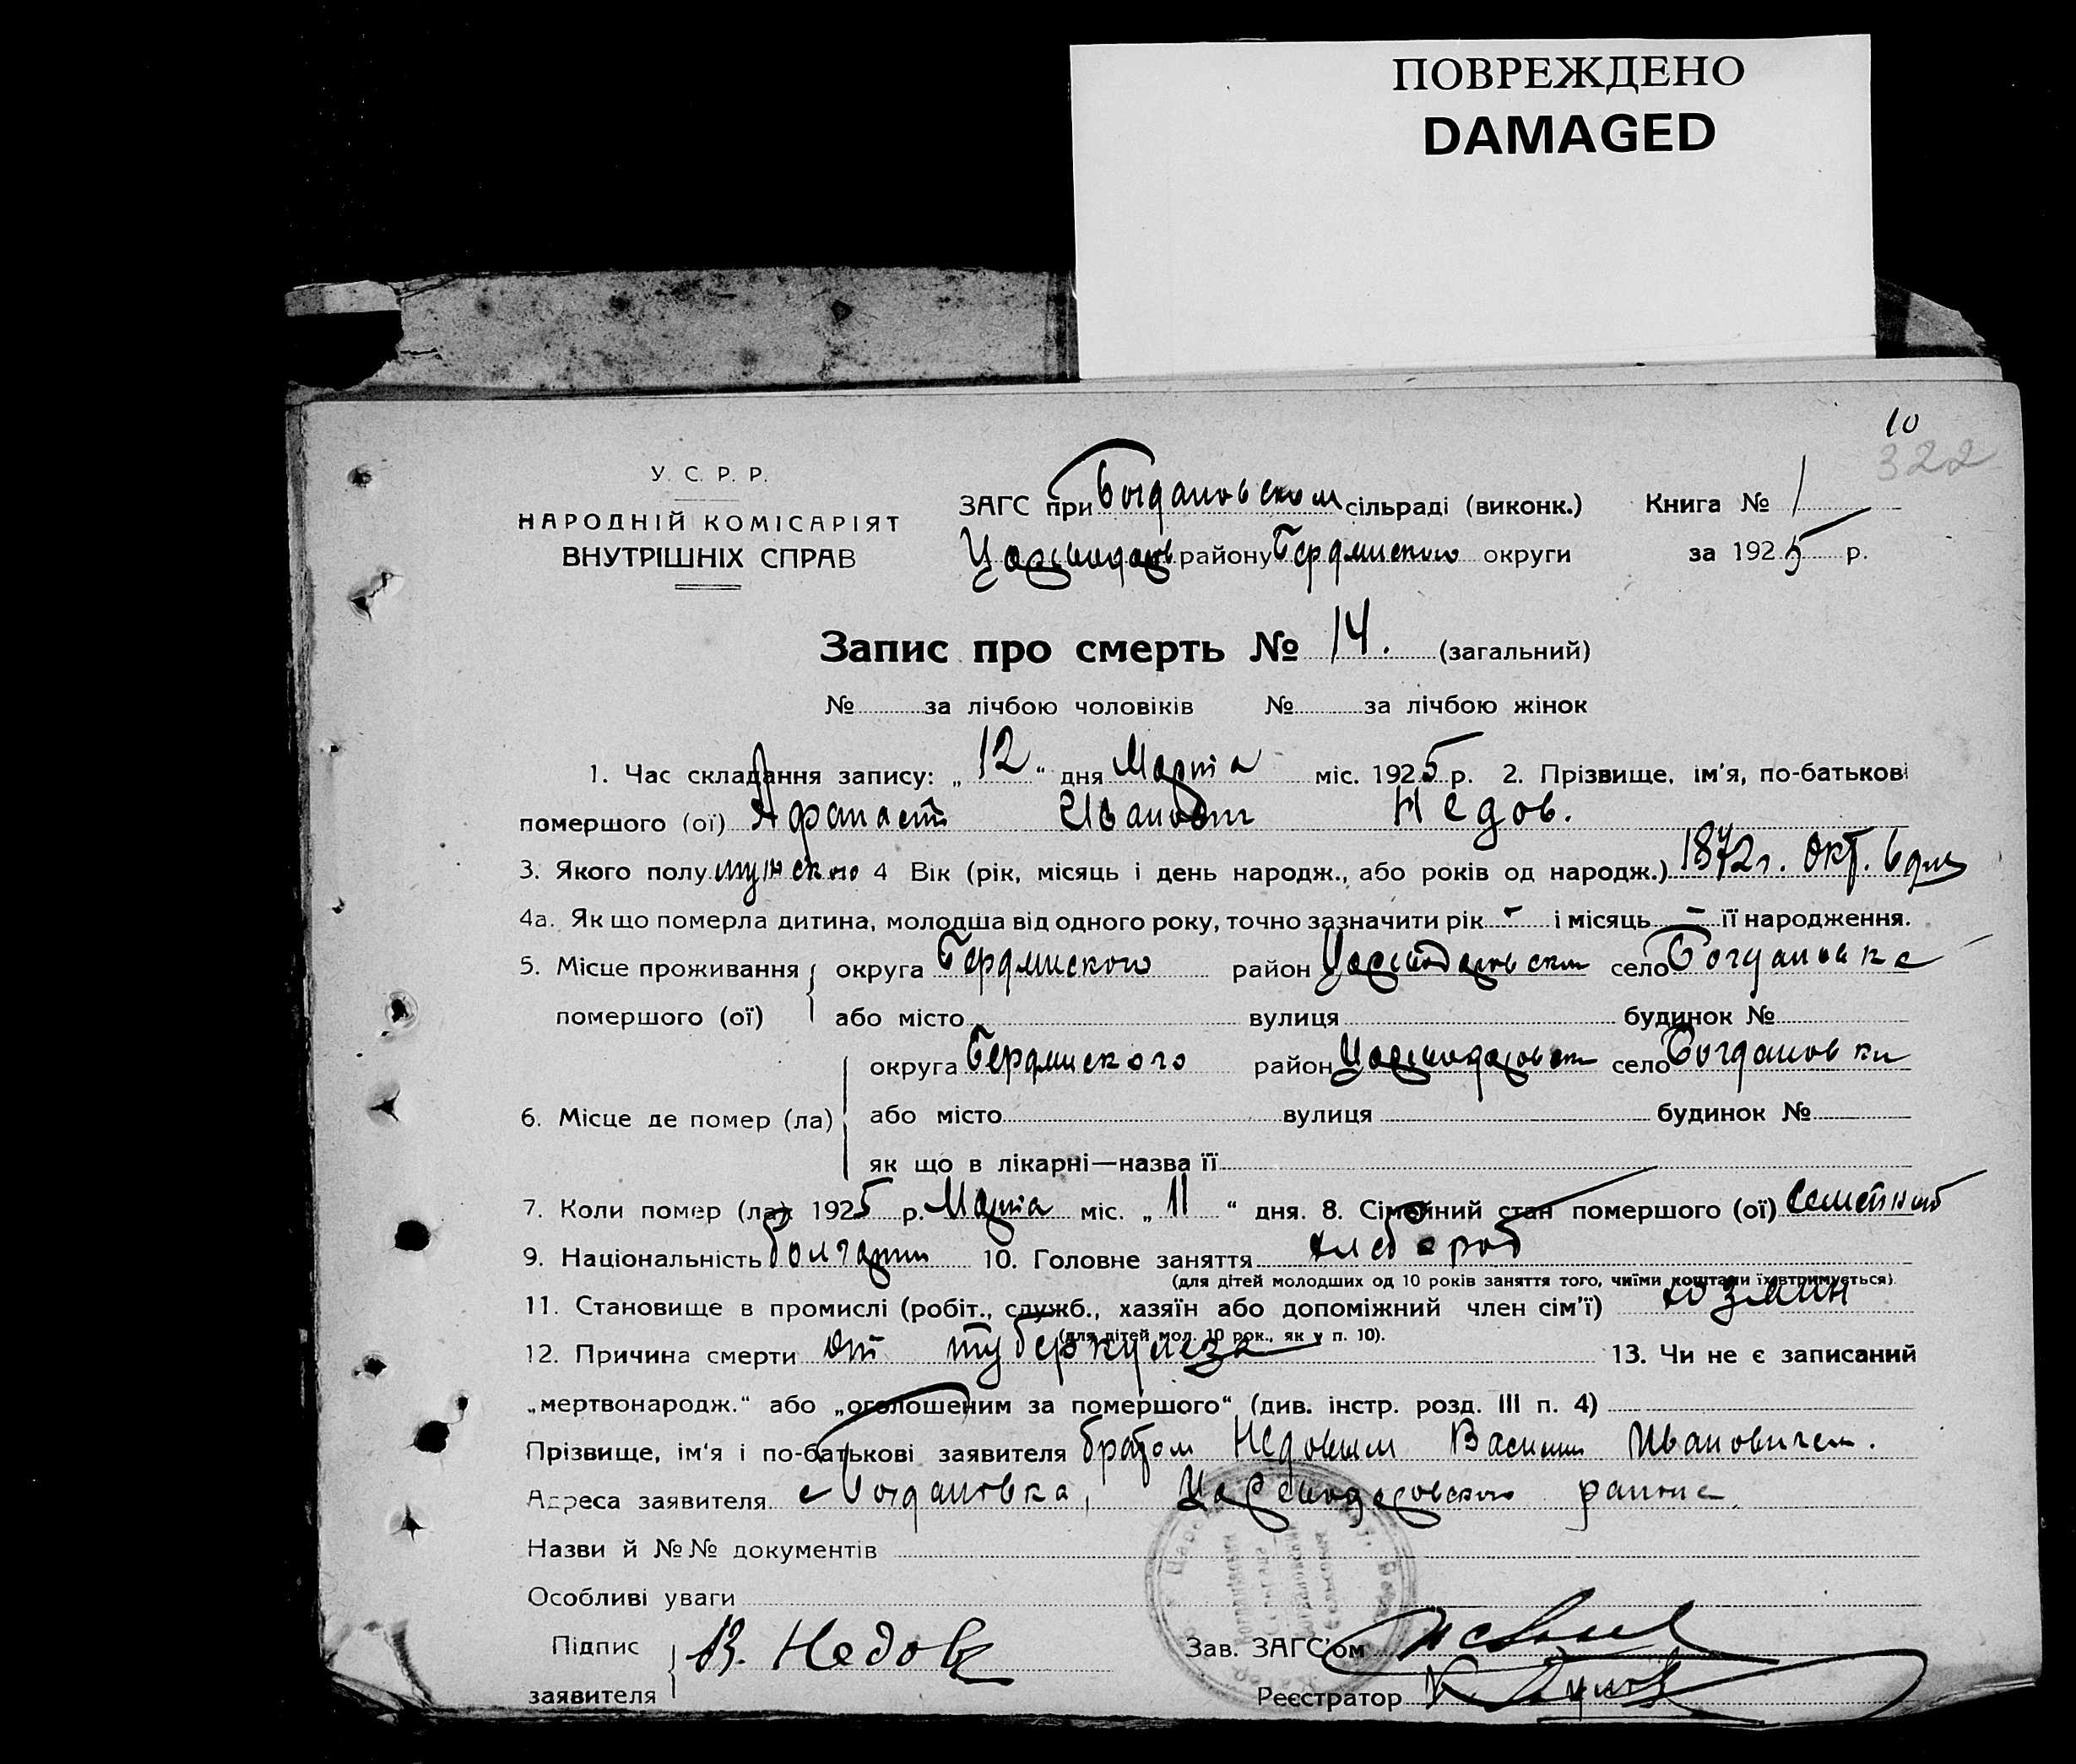 ПОВРЕЖДЕНО
DAMAGED
10
322
У. С. Р. Р.
НАРОДНІЙ КОМІСАРІЯТ
ВНУТРІШНІХ СПРАВ
ЗАГС при Богдановском сільраді (виконк.) Книга № 1
району Бердянского округи за 1925 р.
Запис про смерть № 14. (загальний)
№ за лічбою чоловіків № за лічбою жінок
1. Час складання запису: „12“ дня Марта міс. 1925 р. 2. Прізвище, ім'я, по-батькові
помершого (ої) Афанасий Иванович Недов.
3. Якого полу мужского 4 Вік (рік, місяць і день народж., або років од народж.) 1872 г. Окт. 6 дня
4а. Як що померла дитина, молодша від одного року, точно зазначити рік - і місяць - її народження.
5. Місце проживання округа Бердянского район село Богдановке
помершого (ої) або місто вулиця будинок №
округа Бердянского район село Богдановки
6. Місце де помер (ла) або місто вулиця будинок №
як що в лікарні—назва її
7. Коли помер (ла) 1925 р. Марта міс. „11“ дня. 8. Сімейний стан помершого (ої) Семейный
9. Національність болгарин 10. Головне заняття хлебороб
(для дітей молодших од 10 років заняття того, чиїми коштами їх втримується)
11. Становище в промислі (робіт., служб., хазяїн або допоміжний член сім'ї) хозяин
(для дітей мол. 10 рок., як у п. 10).
12. Причина смерти от туберкулеза 13. Чи не є записаний
„мертвонародж.“ або „оголошеним за помершого“ (див. інстр. розд. III п. 4)
Прізвище, ім'я і по-батькові заявителя братом Недовым Василием Ивановичем.
Адреса заявителя с Богдановка, района.
Назви й №№ документів
Особливі уваги
Підпис В. Недов Зав. ЗАГС'ом
заявителя Реєстратор